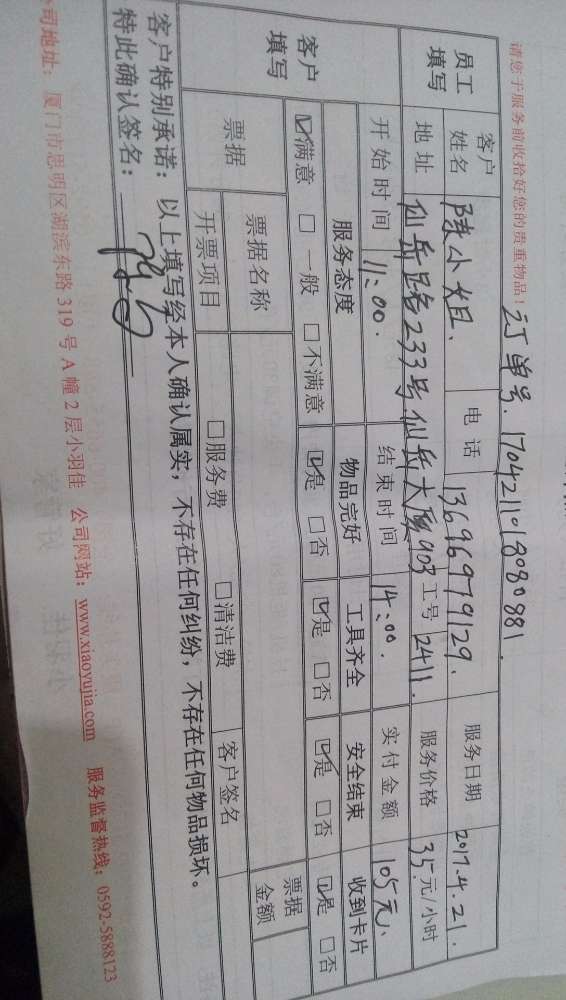 订单号. 1704211018080881.
请您于服务前收拾好您的贵重物品！
员工填写 客户姓名 陈小姐. 电话 13696979129. 服务日期 2017.4.21.
地址 仙岳路233号仙岳大厦903 工号 2411. 服务价格 35元/小时
开始时间 11:00. 结束时间 14:00. 实付金额 105元.
客户填写 服务态度 物品完好 工具齐全 安全结束 收到卡片
☑满意 □一般 □不满意 ☑是 □否 ☑是 □否 ☑是 □否 ☑是 □否
票据 票据名称 票据金额
开票项目 □服务费 □清洁费 客户签名
客户特别承诺：以上填写经本人确认属实，不存在任何纠纷，不存在任何物品损坏。
特此确认签名：
公司地址：厦门市思明区湖滨东路319号A幢2层小羽佳 公司网站：www.xiaoyujia.com 服务监督热线：0592-5888123